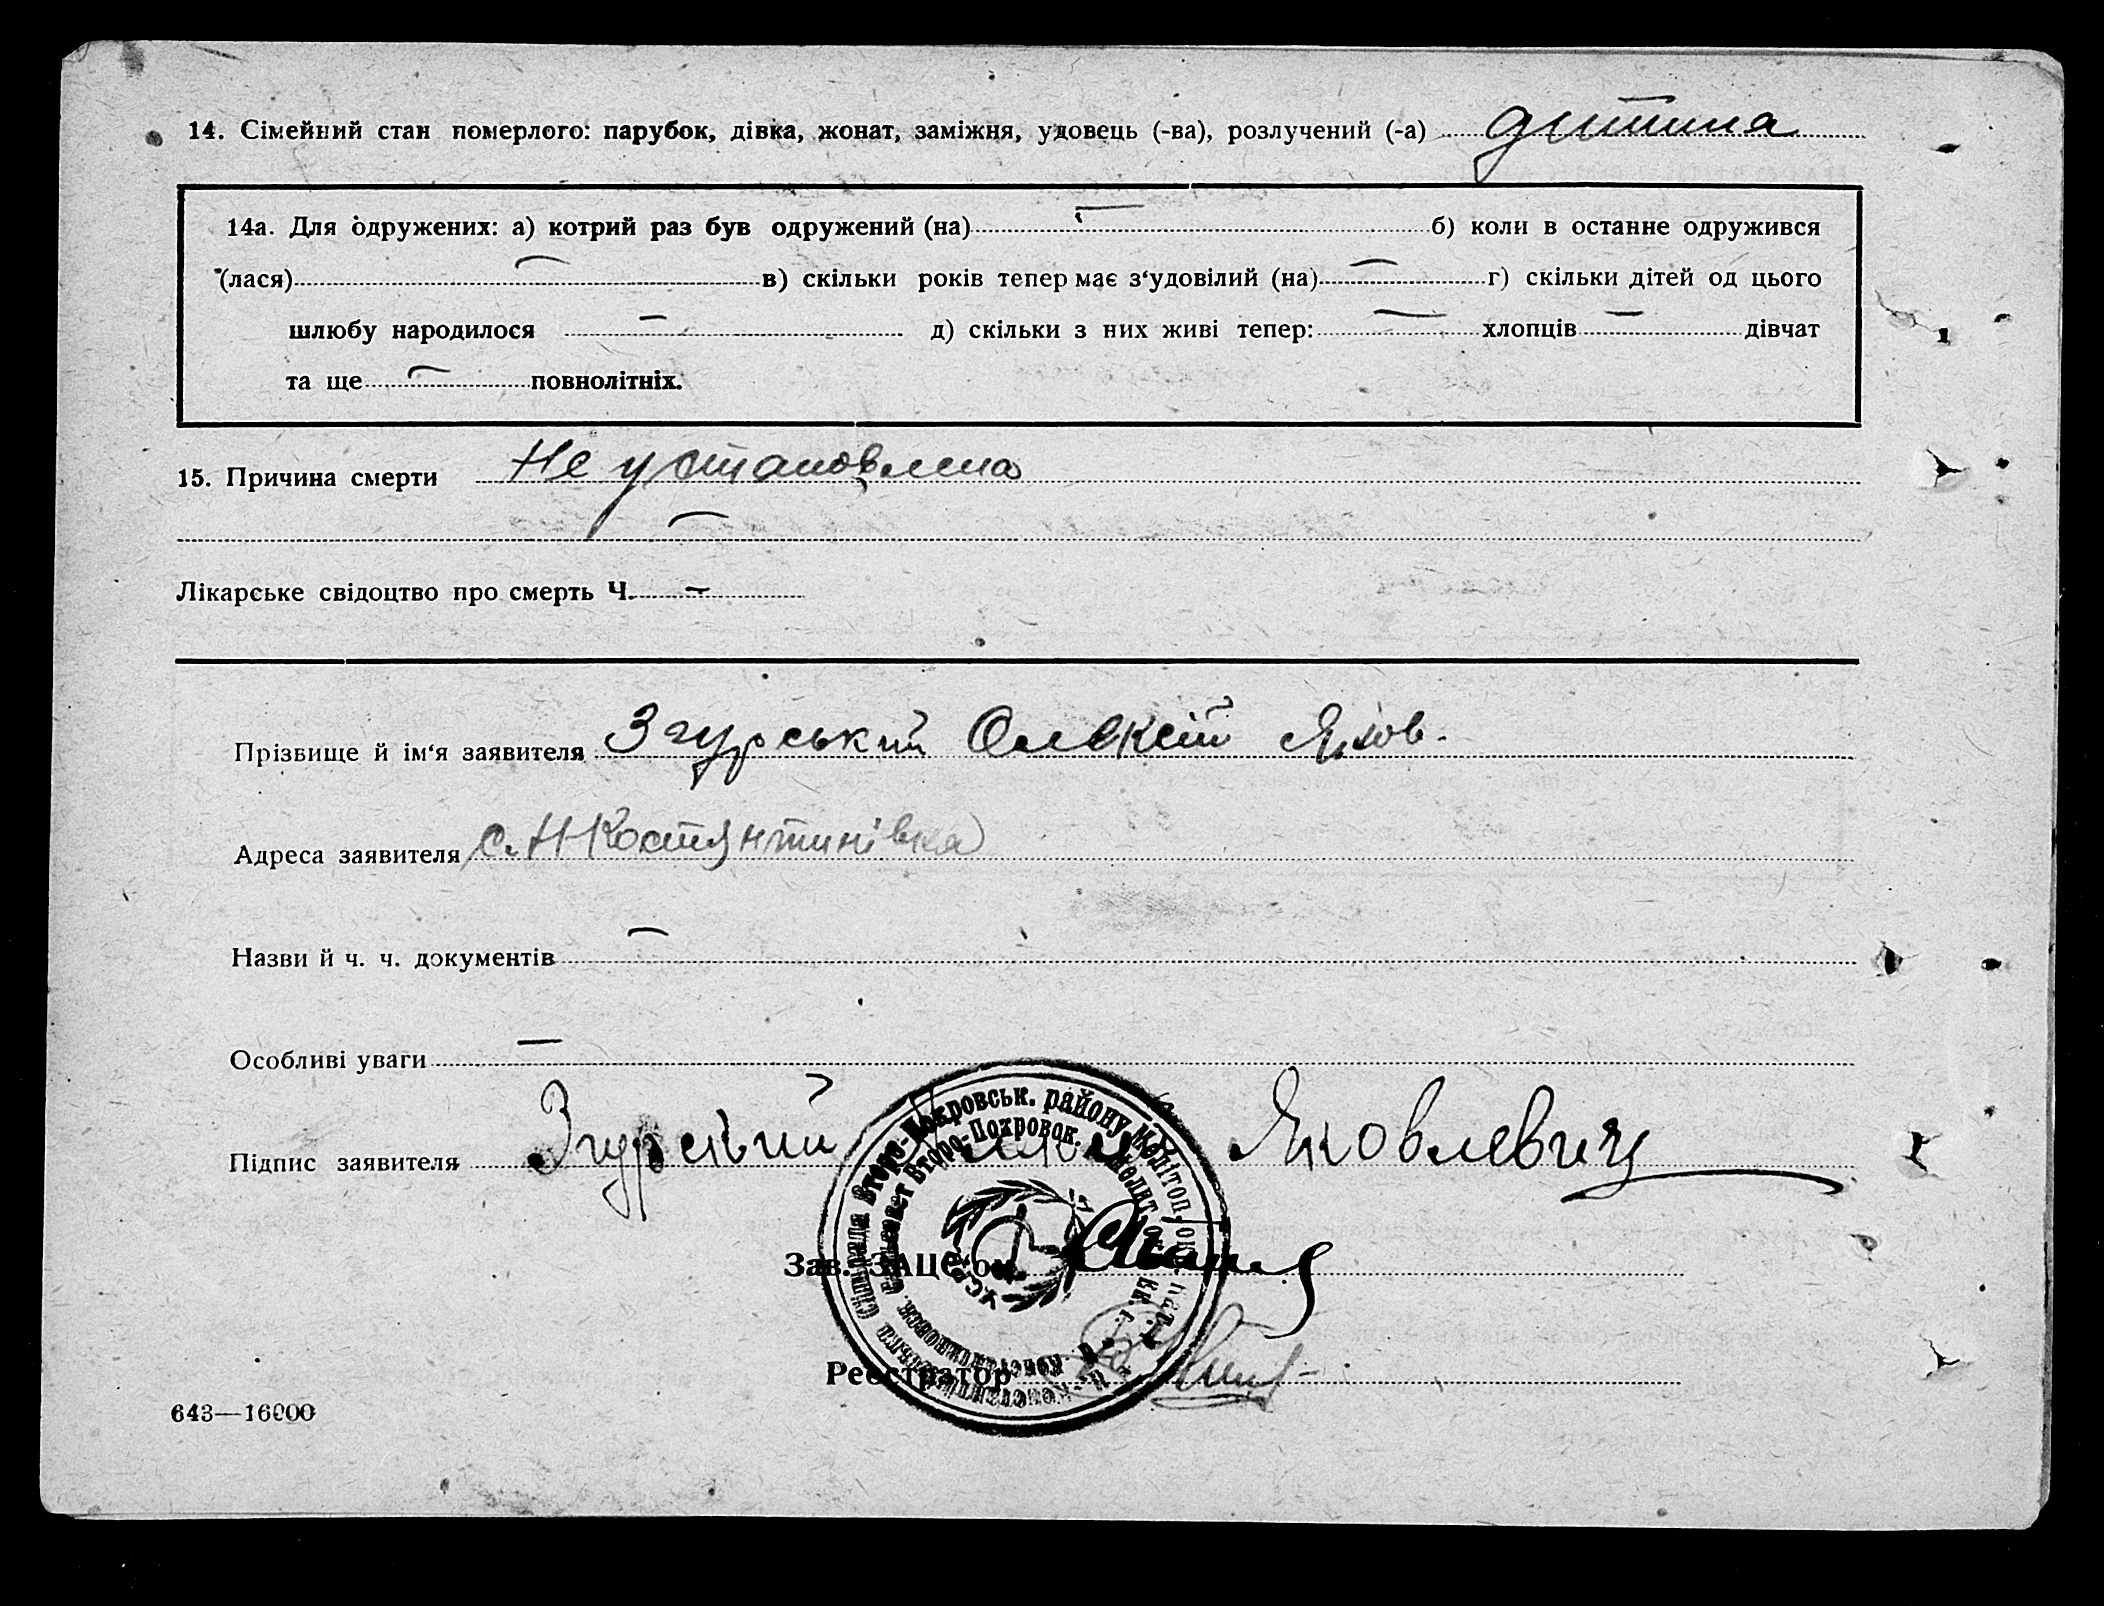 14. Сімейний стан померлого: парубок, дівка, жонат, заміжня, удовець (-ва), розлучений (-а) дитина
14а. Для одружених: а) котрий раз був одружений (на) — б) коли в останне одружився
(лася) — в) скільки років тепер має з‘удовілий (на) — г) скільки дітей од цього
шлюбу народилося — д) скільки з них живі тепер: — хлопців — дівчат
та ще — повнолітніх.
15. Причина смерти Не установлена
—
Лікарське свідоцтво про смерть Ч. —
Прізвище й ім‘я заявителя Згурський Олексій Яков.
Адреса заявителя с. Н Костянтинівка
Назви й ч. ч. документів —
Особливі уваги —
Підпис заявителя Згурський Яковлевич
Зав. ЗАЦС‘ом
Реєстратор
Сільрада Второ-Покровськ. району Меліторп. окр.
Сельсовет Второ-Покровск.
УСРР
643—16000